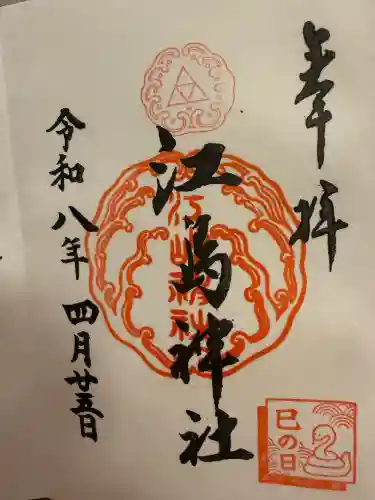 奉拝
江島神社
江島神社
令和八年四月廿五日
巳の日